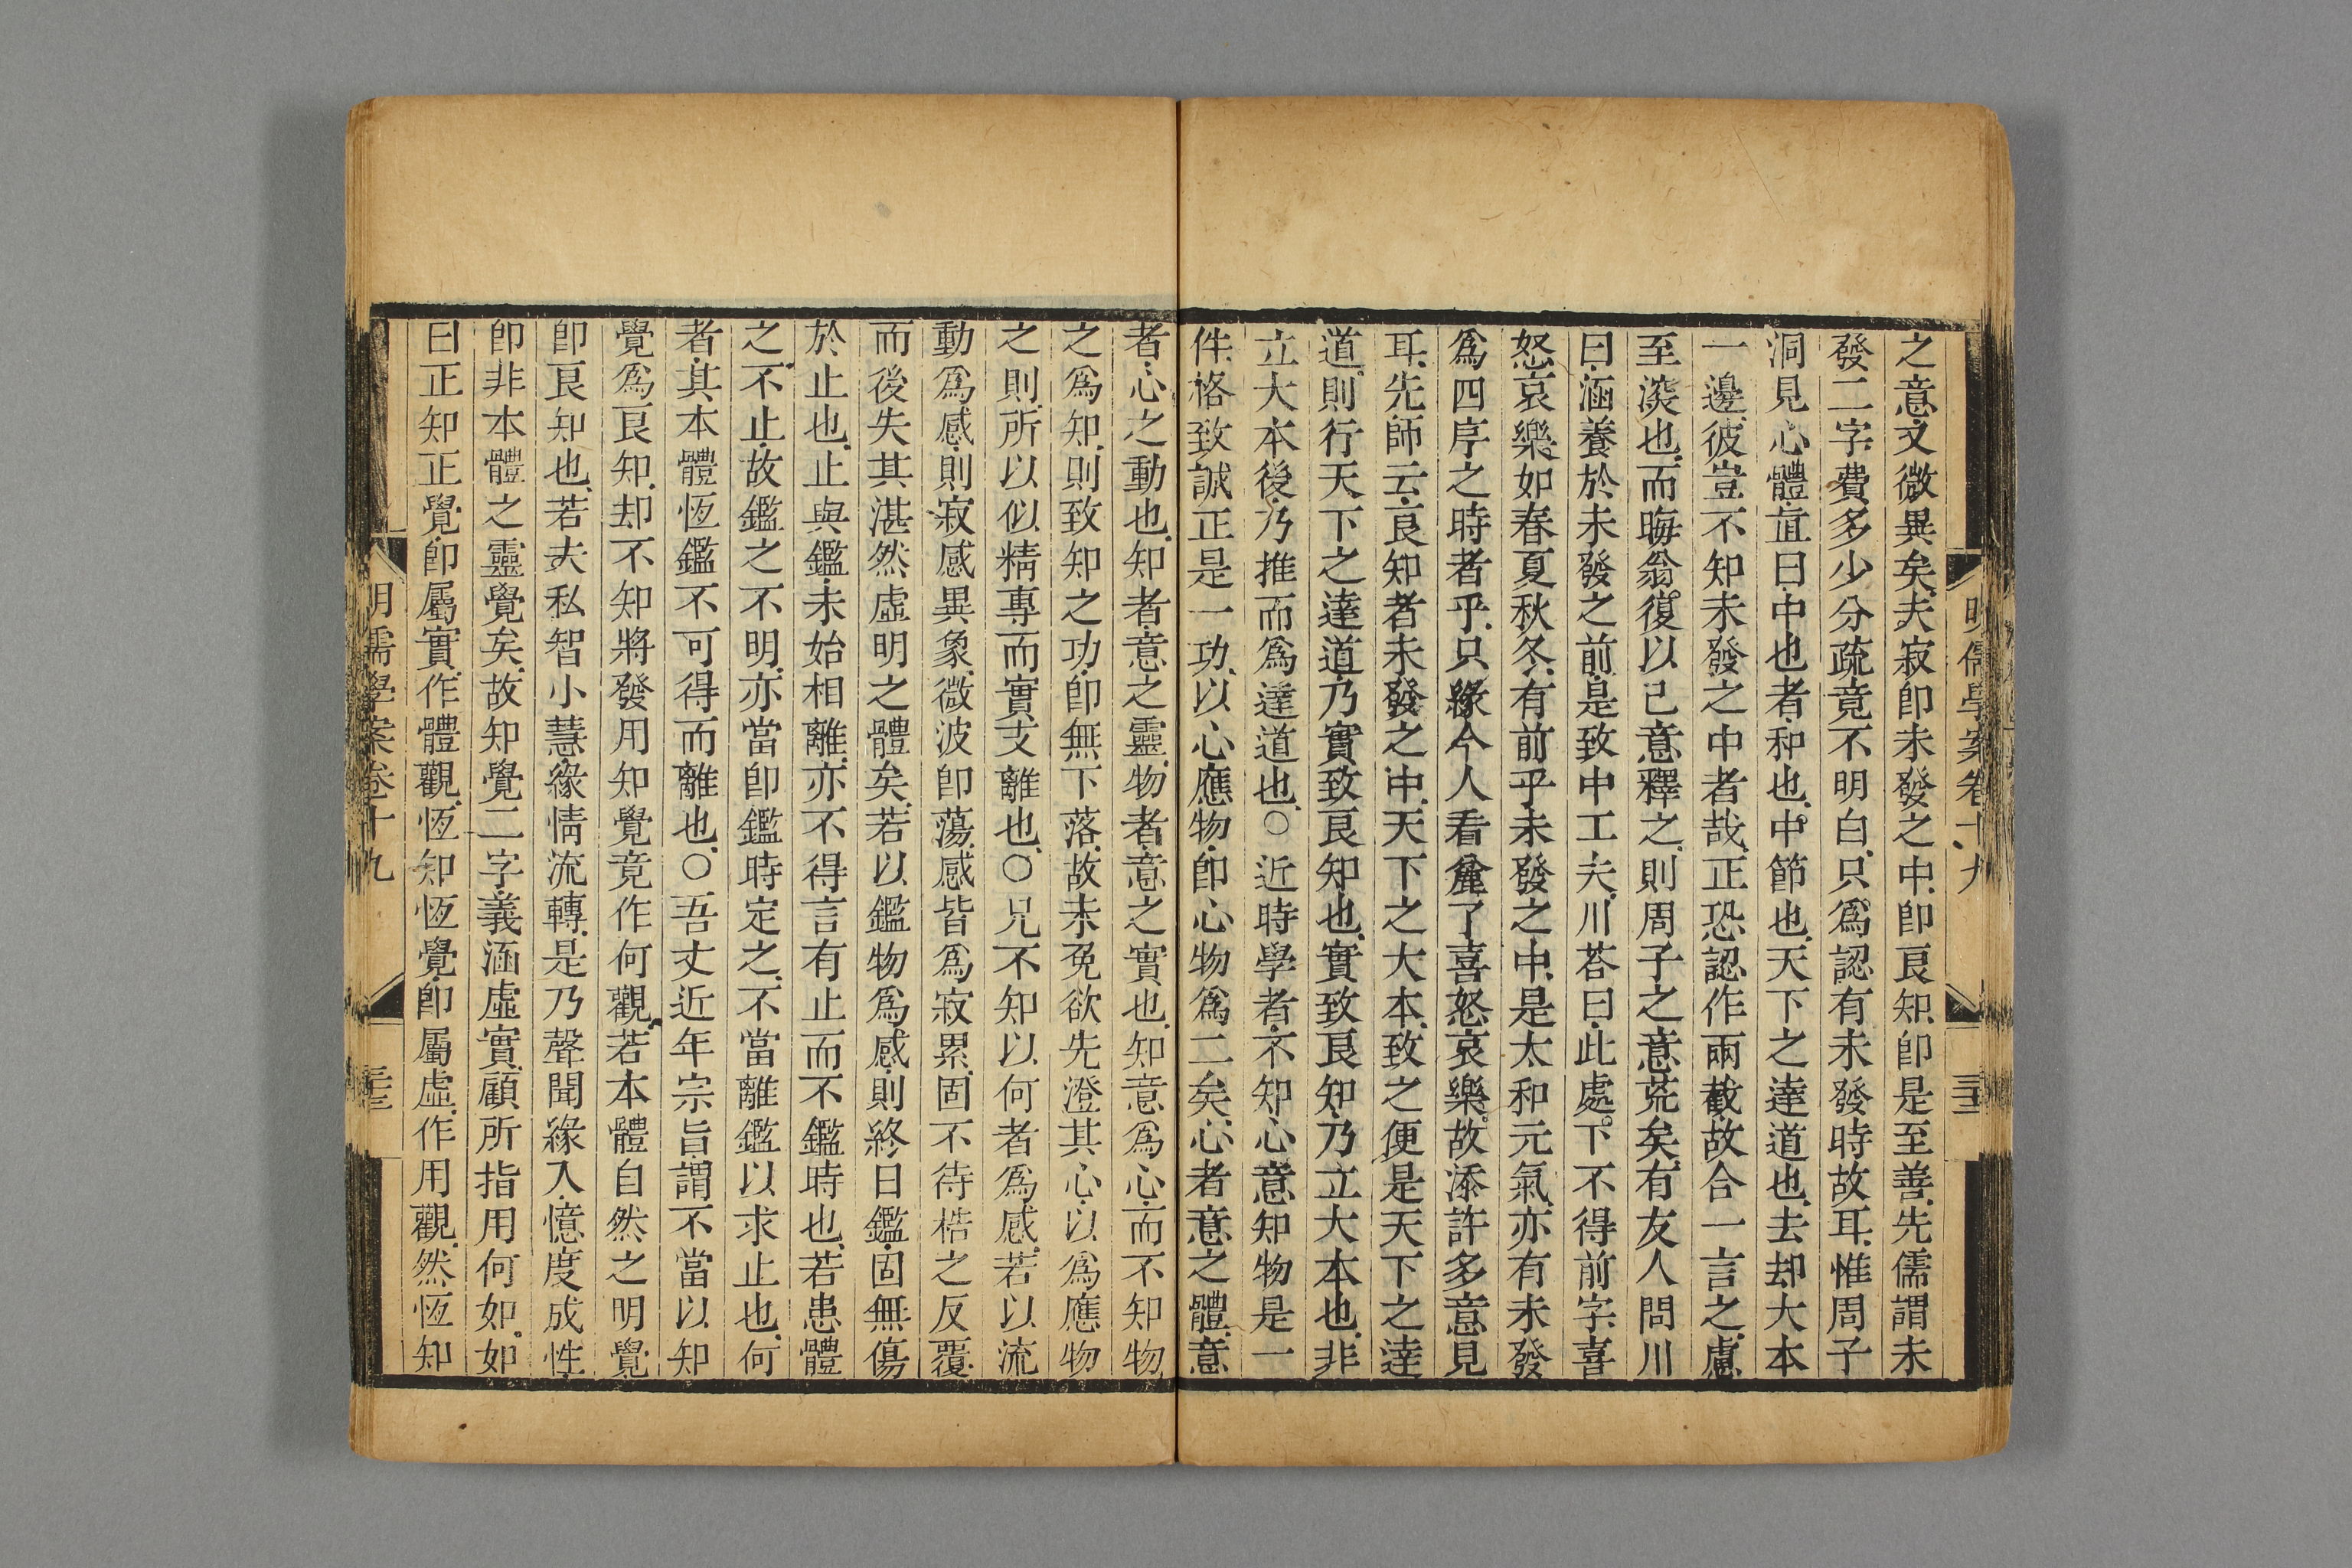 明儒學案卷十九
之意文微異矣夫寂卽未發之中卽良知卽是至善先儒謂未
發二字費多少分疏竟不明白只爲認有未發時故耳惟周子
洞見心體直曰中也者和也中節也天下之達道也去却大本
一邊彼豈不知未發之中者哉正恐認作兩截故合一言之慮
至深也而晦翁復以己意釋之則周子之意荒矣有友人問川
曰涵養於未發之前是致中工夫川荅曰此處下不得前字喜
怒哀樂如春夏秋冬有前乎未發之中是太和元氣亦有未發
爲四序之時者乎只緣今人看麄了喜怒哀樂故添許多意見
耳先師云良知者未發之中天下之大本致之便是天下之達
道則行天下之達道乃實致良知也實致良知乃立大本也非
立大本後乃推而爲達道也○近時學者不知心意知物是一
件格致誠正是一功以心應物卽心物爲二矣心者意之體意
者心之動也知者意之靈物者意之實也知意爲心而不知物
之爲知則致知之功卽無下落故未免欲先澄其心以爲應物
之則所以似精專而實支離也○兄不知以何者爲感若以流
動爲感則寂感異象微波卽蕩感皆爲寂累固不待梏之反覆
而後失其湛然虛明之體矣若以鑑物爲感則終日鑑固無傷
於止也止與鑑未始相離亦不得言有止而不鑑時也若患體
之不止故鑑之不明亦當卽鑑時定之不當離鑑以求止也何
者其本體恆鑑不可得而離也○吾丈近年宗旨謂不當以知
覺爲良知却不知將發用知覺竟作何觀若本體自然之明覺
卽良知也若夫私智小慧緣情流轉是乃聲聞緣入憶度成性
卽非本體之靈覺矣故知覺二字義涵虛實顧所指用何如如
曰正知正覺卽屬實作體觀恆知恆覺卽屬虛作用觀然恆知
明儒學案卷十九